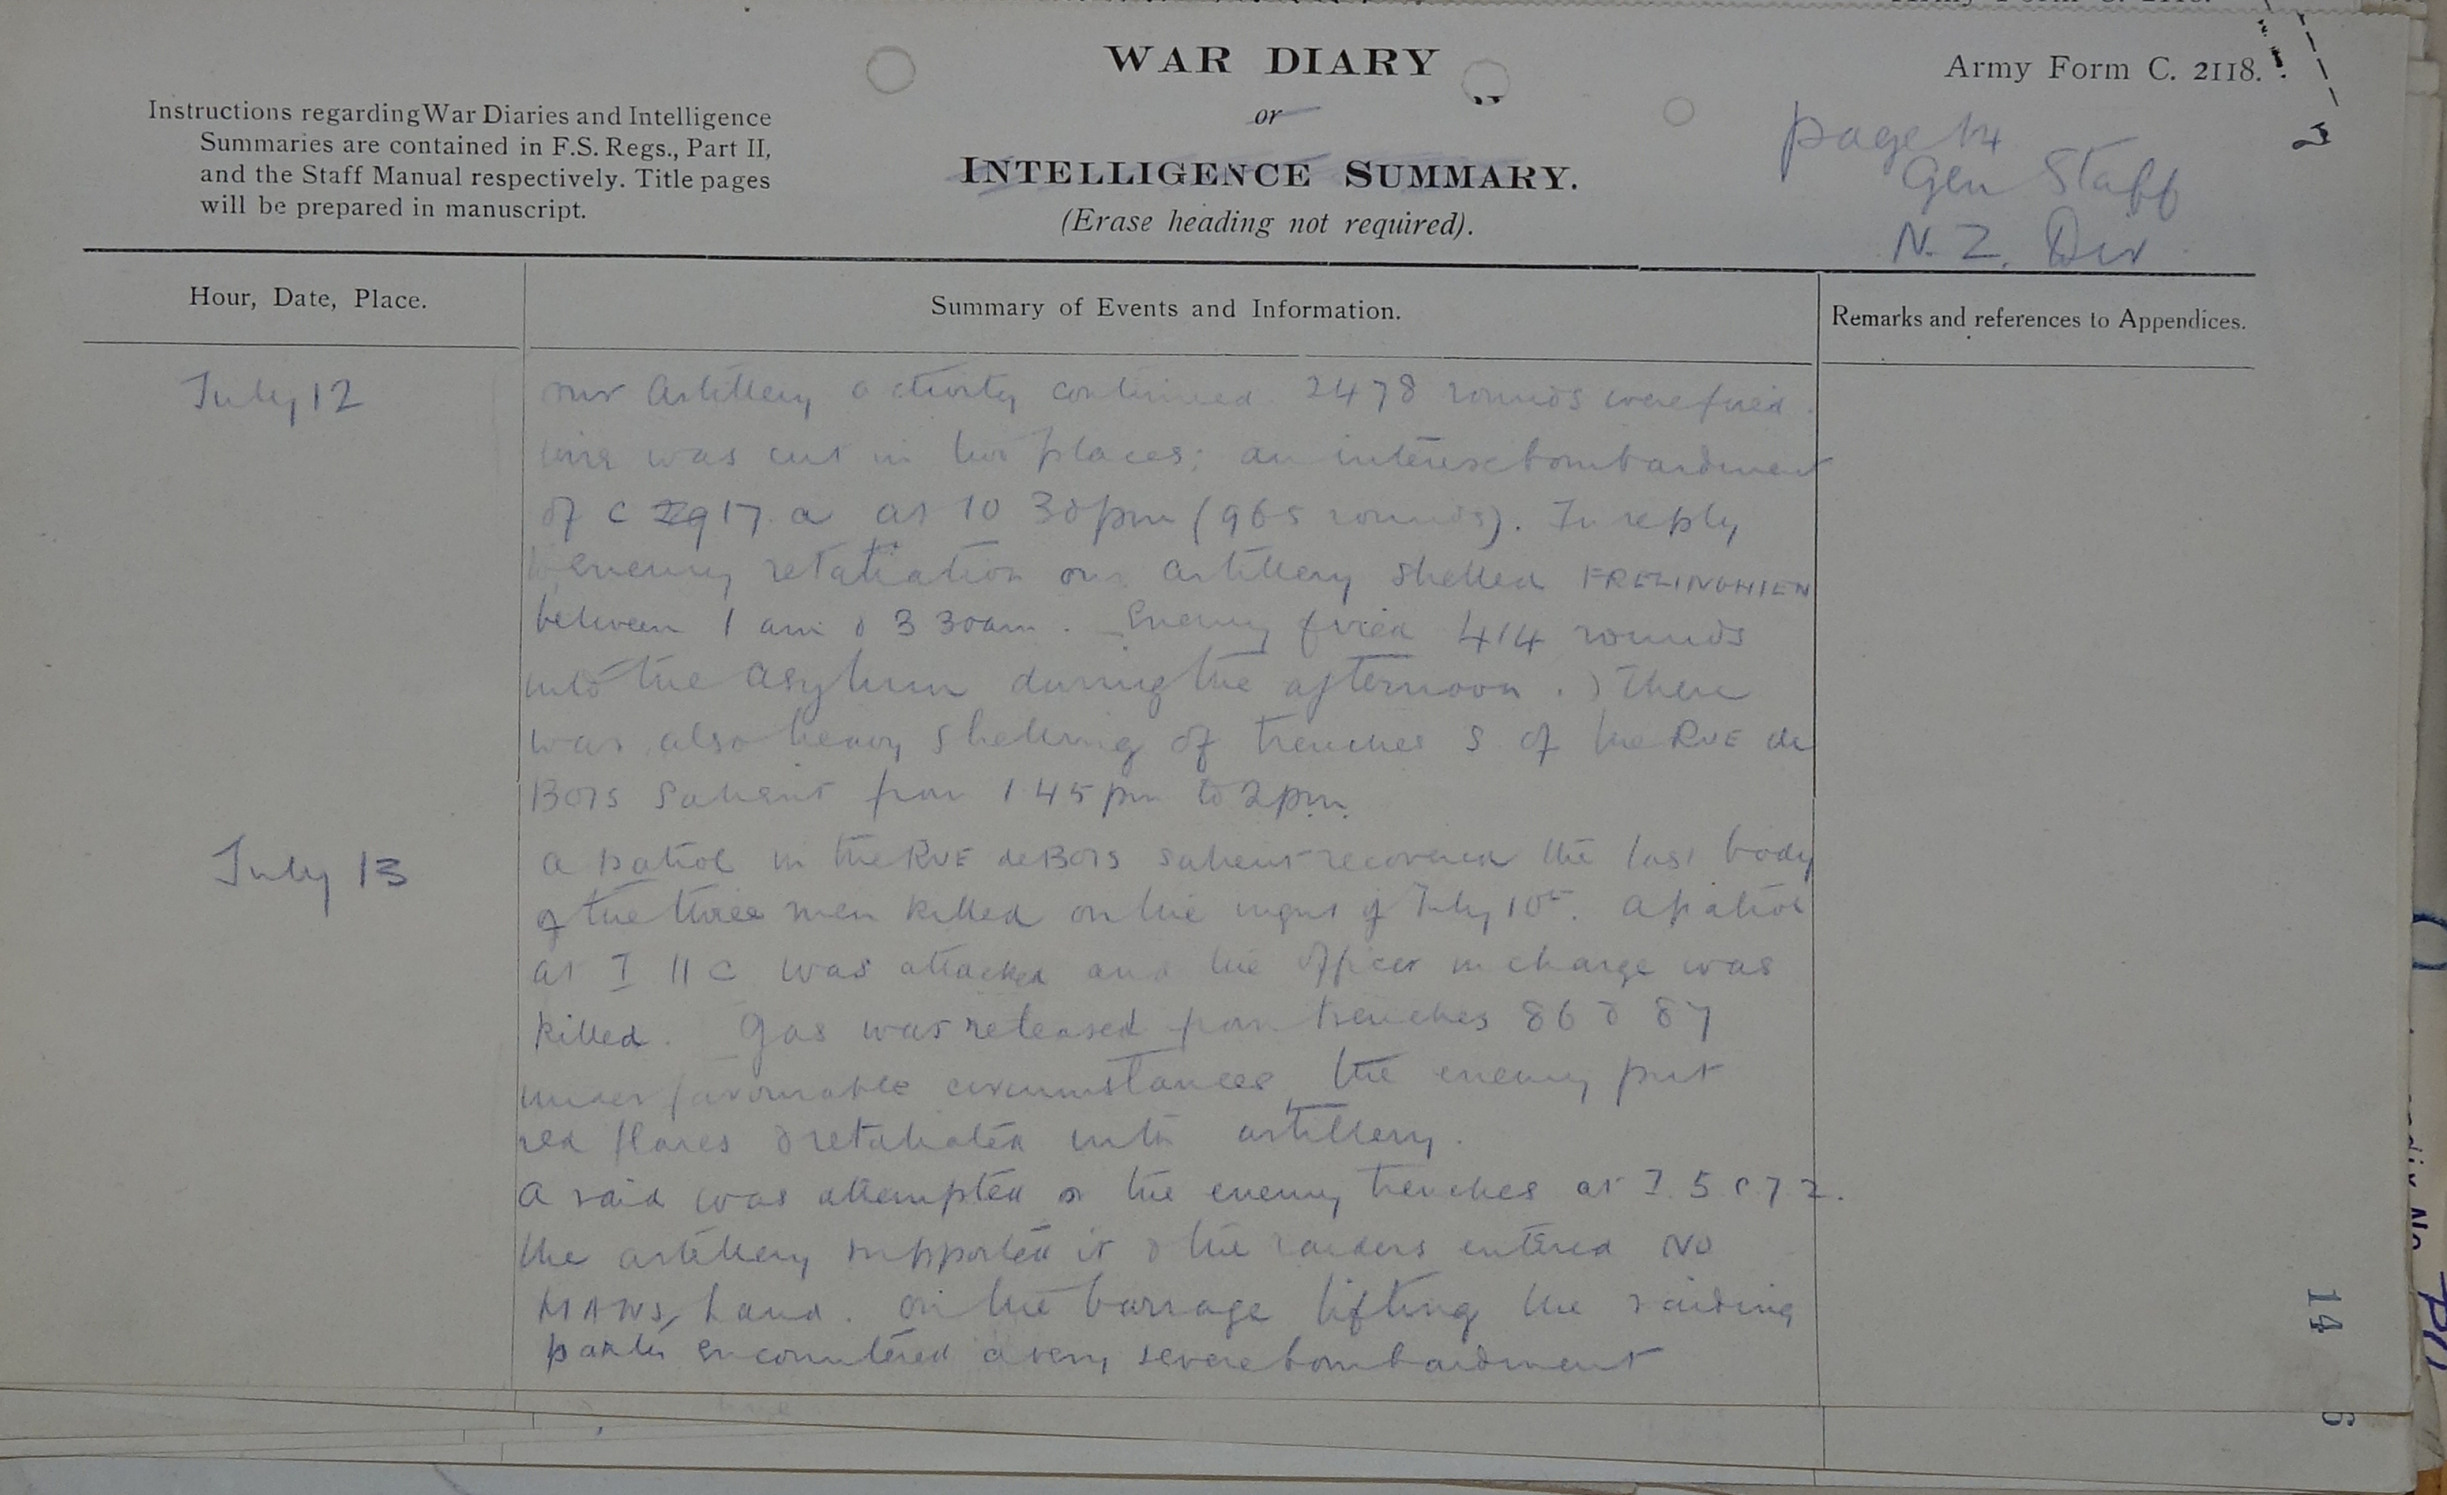 WAR DIARY
or
INTELLIGENCE SUMMARY.
(Erase heading not required).
Army Form C. 2118.
Instructions regarding War Diaries and Intelligence
Summaries are contained in F.S. Regs., Part II,
and the Staff Manual respectively. Title pages
will be prepared in manuscript.
page 14
Gen Staff
N. Z. Div
Hour, Date, Place.
Summary of Events and Information.
Remarks and references to Appendices.
July 12
our Artillery activity continued. 2478 rounds were fired.
wire was cut in two places; an intense bombardment
of C 17 a at 10 30pm (965 rounds). In reply
to enemy retaliation our artillery shelled FRELINGHIEN
between 1 am & 3 30am. Enemy fired 414 rounds
into the asylum during the afternoon. There
was also heavy shelling of trenches S of the RUE de
BOIS Salient from 1 45 pm to 2pm.
July 13
A patrol in the RUE de BOIS salient recovered the last body
of the three men killed on the night of July 10th. A patrol
at I 11 C was attacked and the officer in charge was
killed. Gas was released from trenches 86 & 87
under favourable circumstances, the enemy put
red flares & retaliated with artillery.
A raid was attempted on the enemy trenches at I 5 c 7 2.
the artillery supported it & the raiders entered NO
MANS Land. On the barrage lifting the raiding
party encountered a very severe bombardment
14
6